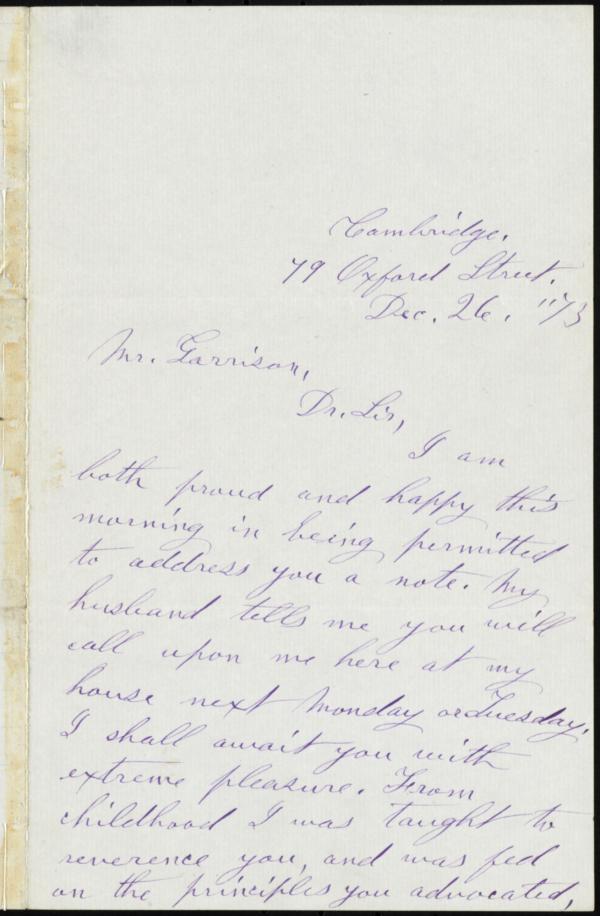 Cambridge.
79 Oxford Street.
Dec. 26. "73
Mr. Garrison,
Dr. Sir,
I am
both proud and happy this
morning in being permitted
to address you a note. My
husband tells me you will
call upon me here at my
house next Monday or Tuesday.
I shall await you with
extreme pleasure. From
childhood I was taught to
reverence you, and was fed
on the principles you advocated,